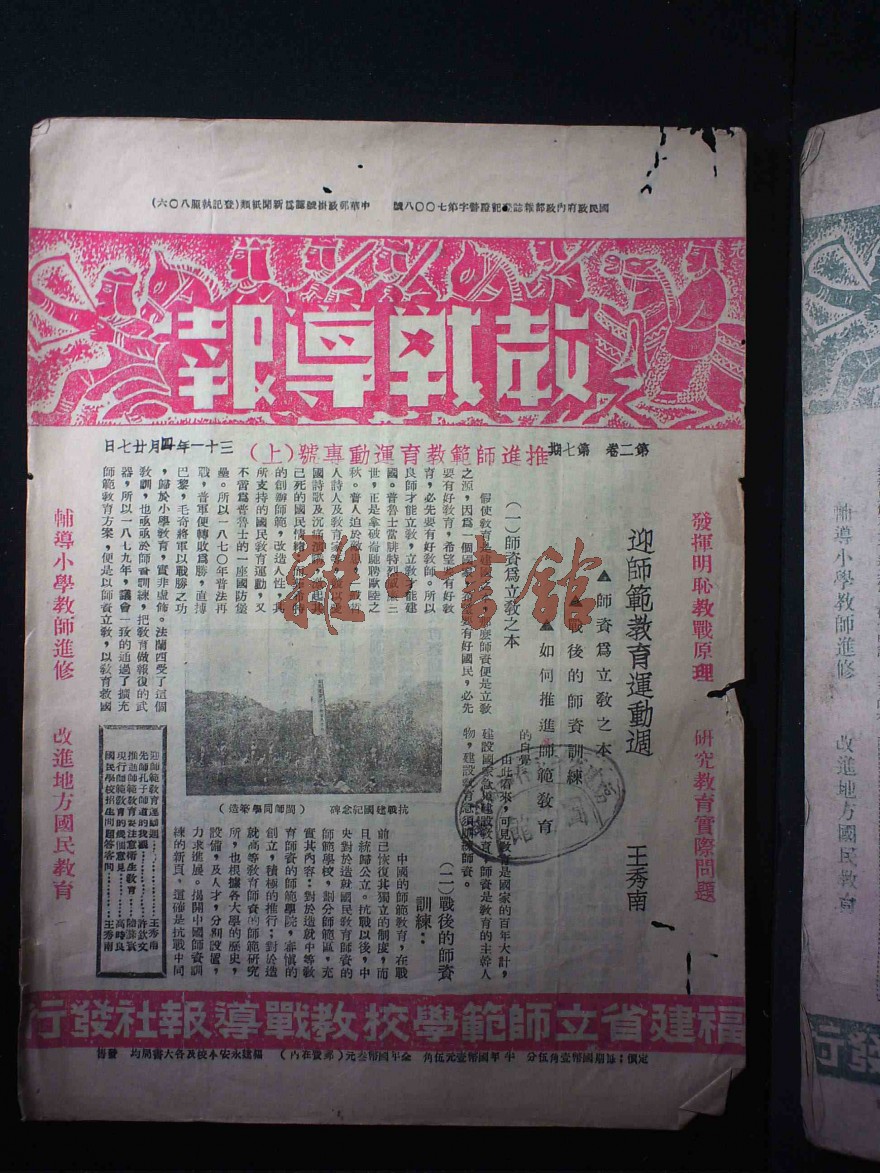 國民政府內政部雜誌登記證警字第七〇〇八號　中華郵政掛號認爲新聞紙類(登記執照八〇六)
教戰導報
第二卷　第七期
推進師範教育運動專號(上)
三十一年四月廿七日
發揮明恥教戰原理　研究教育實際問題
迎師範教育運動週　王秀南
▲師資爲立教之本
▲戰後的師資訓練
▲如何推進師範教育
(一)師資爲立教之本
假使教育是建國之，麼師資便是立教
之源，因爲一個國家要有好國民，必先
要有好教育，希望有好教
育，必先要有好教師。所以
良師才能立教，立教才能建
國。普魯士當腓特烈威廉三
世，正是拿破崙馳騁歐陸之
秋。普人迫於敵患，
人詩人及教育家
國詩歌及沉痛演起其
已死的國民情緒希特
的創辦師範，改造人性，其
所支持的國民教育運動，又
不啻爲普魯士的一座國防堡
壘。所以一八七〇年普法再
戰，普軍便轉敗爲勝，直搏
巴黎，毛奇將軍以戰勝之功
，歸於小學教育，實非虛佈。法蘭西受了這個
教訓，也亟亟於師資訓練，把教育做報復的武
器，所以一八七九年，議會一致的通過了擴充
師範教育方案，便是以師資立教，以教育救國
的自覺。
由此看來，可見教育是國家的百年大計，
建設國家急須建設教育，師資是教育的主幹人
物，建設教育急須訓練師資。
(二)戰後的師資
訓練：
中國的師範教育，在戰
前已恢復其獨立的制度，而
且統歸公立。抗戰以後，中
央對於造就國民教育師資的
師範學校，劃分師範區，充
實其內容：對於造就中等教
育師資的師範學院，審愼的
創立，積極的推行；對於造
就高等教育師資的師範研究
所，也根據各大學的歷史，
設備，及人才，分別設置，
力求進展。揭開中國師資訓
練的新頁，這確是抗戰中同
抗戰建國記念碑　（閩師同學築造）
迎師範教育運動週……王秀南
先師孔子師道的我觀……許欽文
推進師範教育要注意衛生教育
現行師範教育的幾個意見……高時良
國民學校招生問題答客問……王秀南
輔導小學教師進修　改進地方國民教育
福建省立師範學校教戰導報社發行
定價：每期國幣壹角伍分　半年國幣壹元伍角　全年國幣叁元（郵費在內）　福建永安本校及各大書局均售
雜·書館
輔導小學教師進修　改進地方國民教育